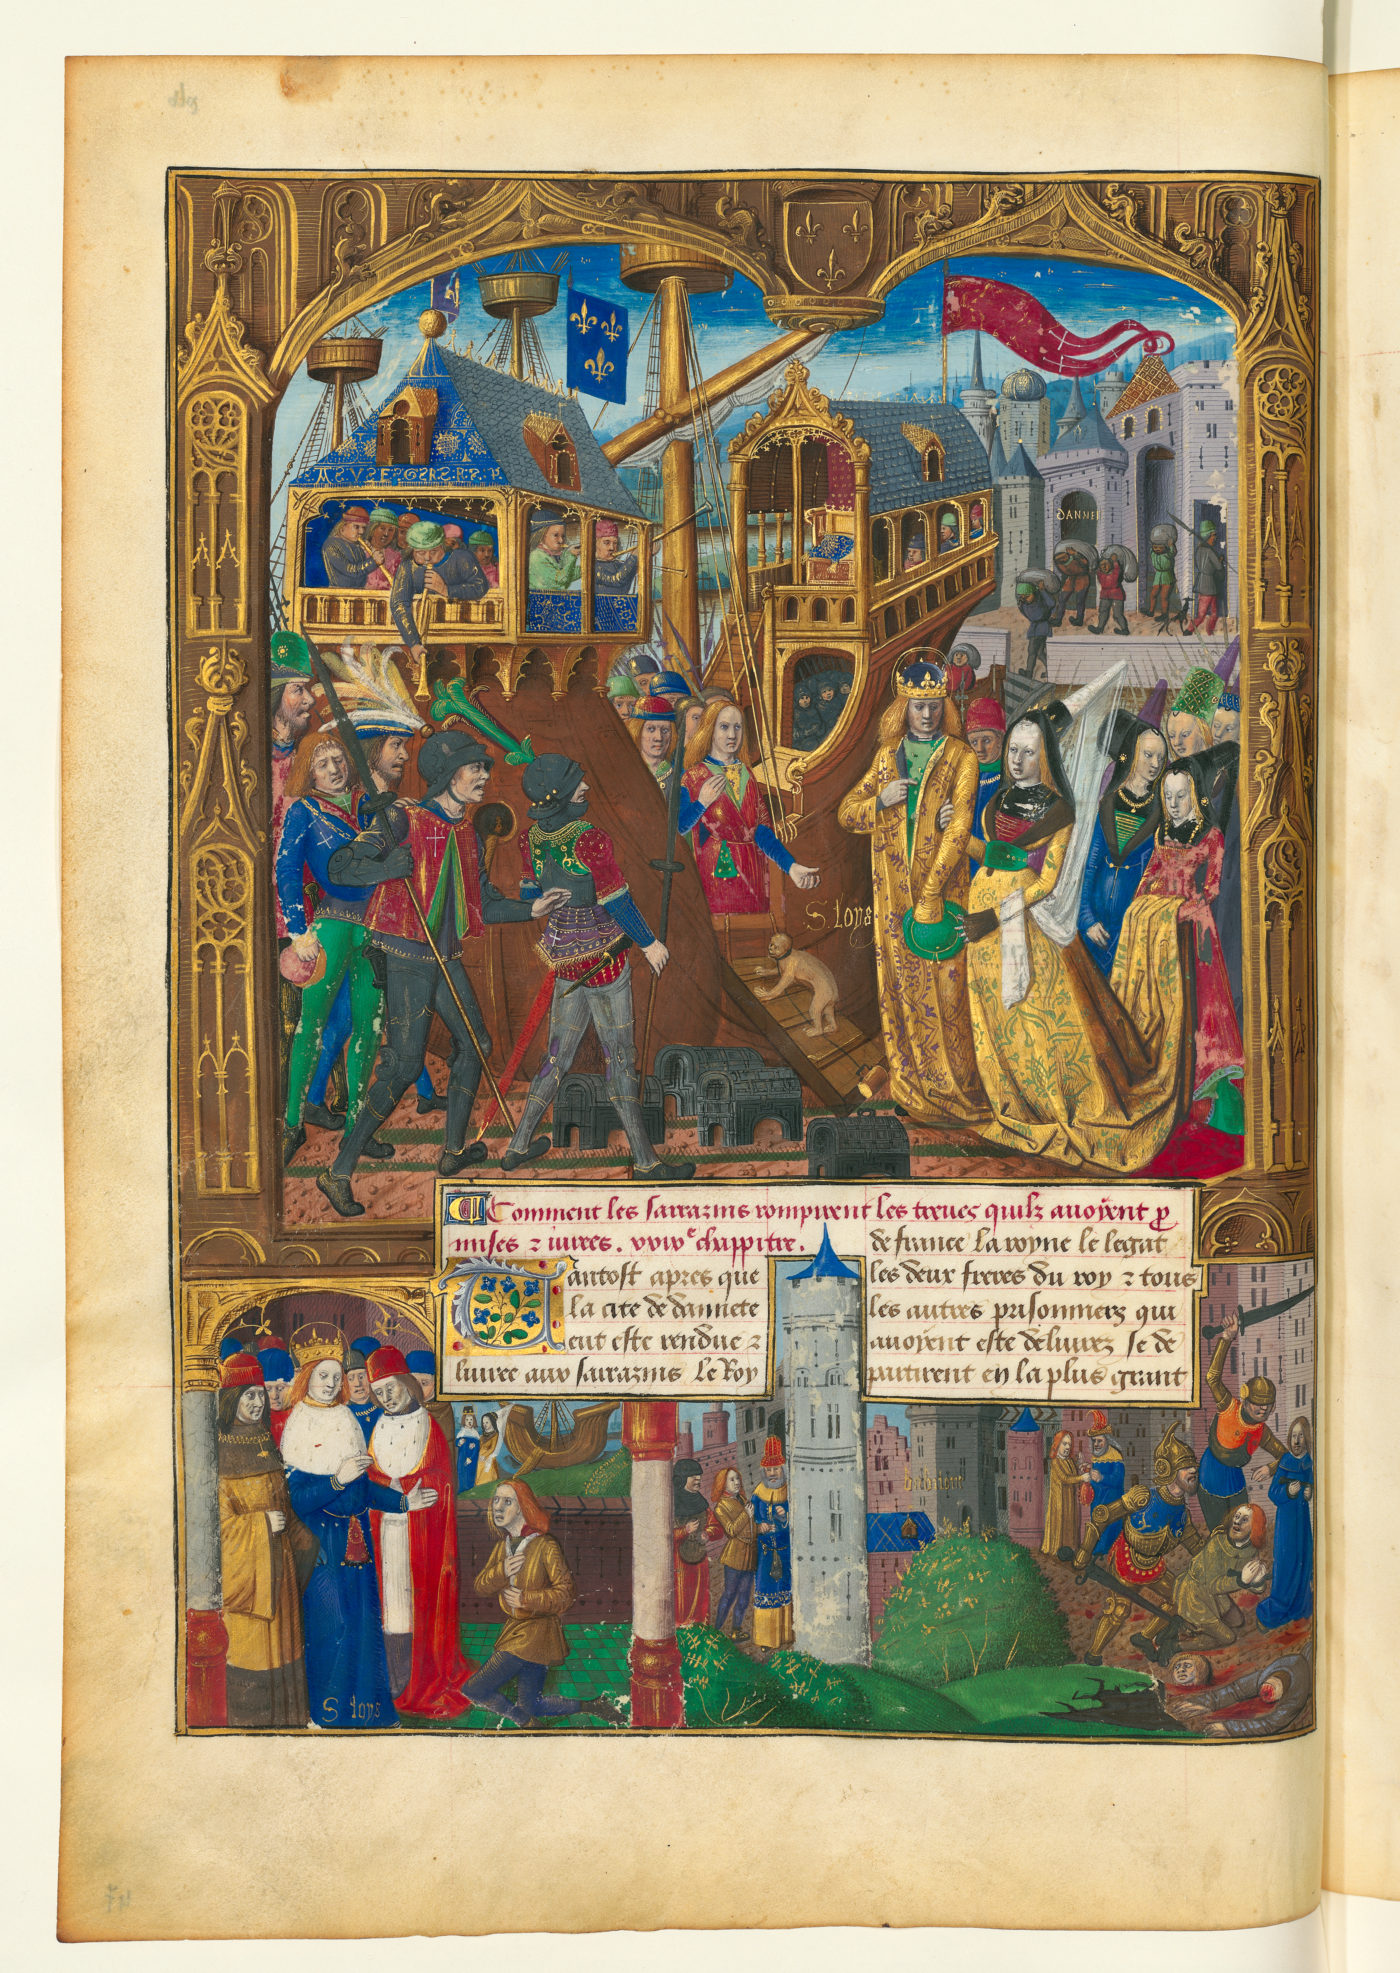 DANNE
S. loys
Comment les sarrazins rompirent les treues quilz auoyent p
mises z iurees. xxiiije chappitre.
Tantost apres que
la cite de damiete
eut este rendue z
liuree aux sarrazins Le Roy
de france la royne le legat
les deux freres du roy z tous
les autres prisonniers qui
auoyent este deliurez se de
partirent en la plus grant
S loys